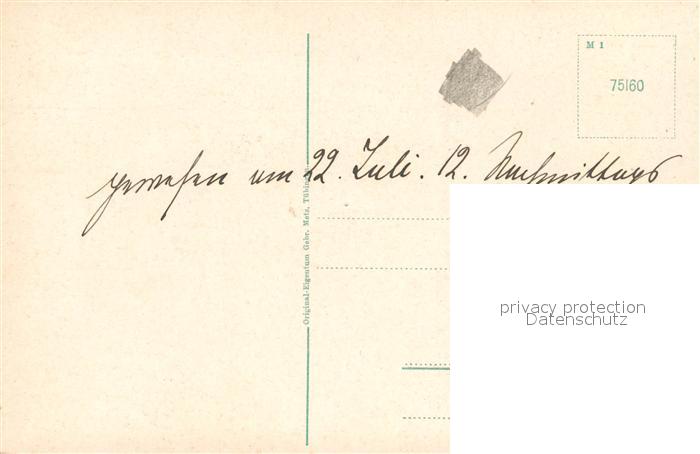 M 1
75160
gewesen am 22. Juli. 12. Nachmittags
Original-Eigentum Gebr. Metz, Tübingen
privacy protection
Datenschutz